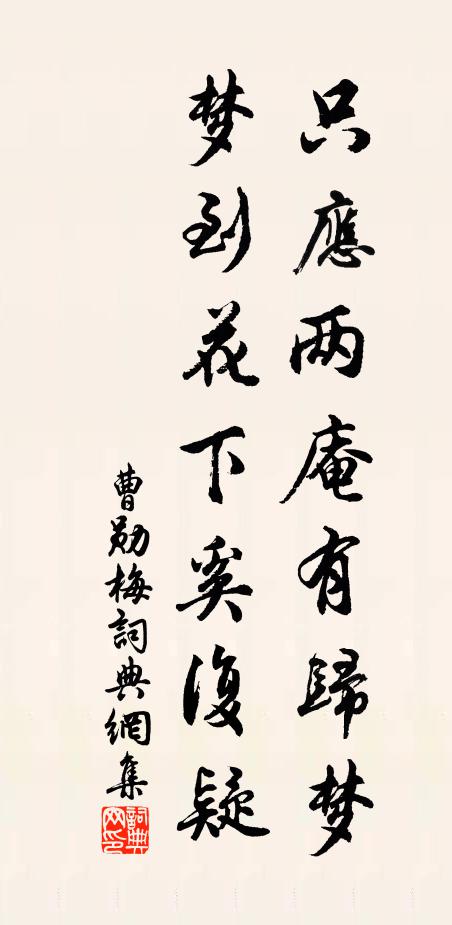 只應两庵有歸梦
梦到花下奚復疑
曹勛梅詞典網集
詞典网印